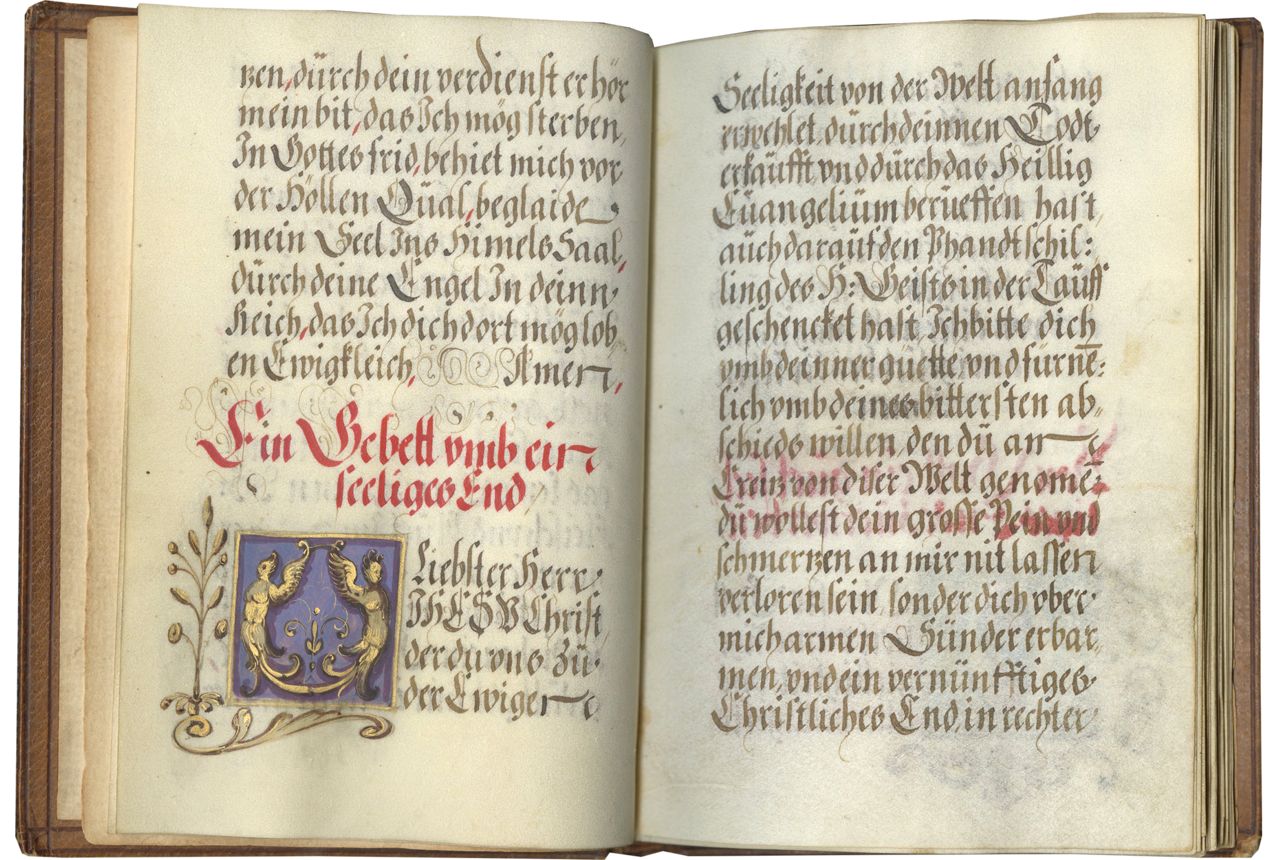 tzen, dürch dein verdienst er hör
mein bit, das Ich mög sterben,
In Gottes frid, behiet mich vor
der Höllen Qüal, beglaide
mein Seel Ins Himels Saal,
dürch deine Engel In deinn
Reich, das Ich dich dort mög lob
en Ewigkleich, Amen,
Ein Gebett vmb ein
seeliges End,
O Liebster Herr
IHESV Christ
der du vns Zü
der Ewigen
Seeligkeit von der Welt anfang
erwehlet, dürch deinnen Todt
erkaüfft, vnd dürch das Heillig
Eüangeliüm berüeffen hast,
aüch daraüf den Phandtschil:
ling des H: Geists in der Taüff
geschencket hast, Ich bitte dich
vmb deinner güette, vnd fürnē:
lich vmb deines bittersten ab,
schieds willen, den dü an
Creütz von diser Welt genomē:
dü wollest dein grosse Pein vnd
schmertzen an mir nit lassen
verloren sein, sonder dich vber
mich armen Sünder erbar,
men, vnd ein vernünfftiges
Christliches End, in rechter